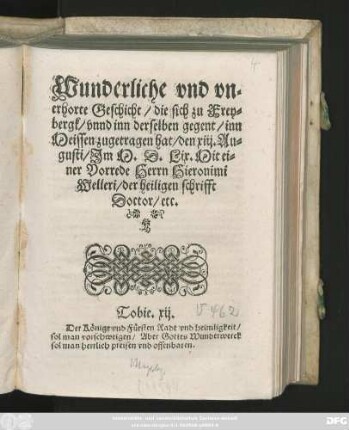 Wunderliche vnd vn-
erhorte Geschicht / die sich zu Frey-
bergk / vnnd inn derselben gegent / inn
Meissen zugetragen hat / den xiij. Au-
gusti / Im M. D. Lix. Mit ei-
ner Vorrede Herrn Hieronimi
Welleri / der heiligen schrifft
Doctor / etc.
Tobie. xij.
V 462
Der Könige vnd Fürsten Radt vnd heimligkeit /
sol man vorschweigen / Aber Gottes Wunderwerck
sol man herrlich preisen vnd offenbaren.